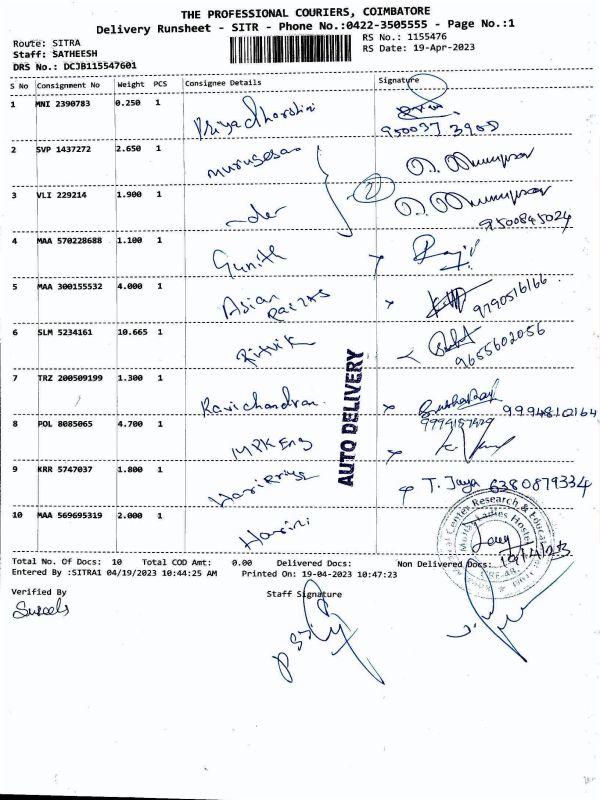 THE PROFESSIONAL COURIERS, COIMBATORE
Delivery Runsheet - SITR - Phone No.:0422-3505555 - Page No.:1
Route: SITRA
Staff: SATHEESH
DRS No.: DCJB115547601
RS No.: 1155476
RS Date: 19-Apr-2023
S No Consignment No Weight PCS Consignee Details Signature
1 MNI 2390783 0.250 1 Priyadharshini
2 SVP 1437272 2.650 1 murugesan
3 VLI 229214 1.900 1 -do-
9500845024
4 MAA 570228688 1.100 1
5 MAA 300155532 4.000 1 Asian
9790516166
6 SLM 5234161 10.665 1 Rithvik
9655602056
7 TRZ 200509199 1.300 1 Ravichandran 9994810164
8 POL 8085065 4.700 1 MPK Eng
9 KRR 5747037 1.800 1 T. Jaya 6380879334
10 MAA 569695319 2.000 1 Harini
AUTO DELIVERY
19/4/23
Total No. Of Docs: 10 Total COD Amt: 0.00 Delivered Docs: Non Delivered Docs:
Entered By :SITRA1 04/19/2023 10:44:25 AM Printed On: 19-04-2023 10:47:23
Verified By
Staff Signature